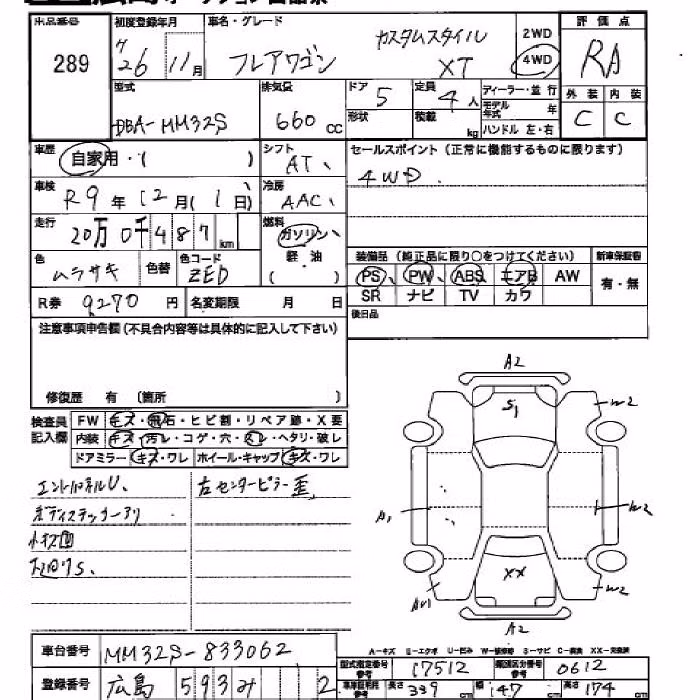 出品番号 289
初度登録年月 ｹ 26 11月
車名・グレード フレアワゴン カスタムスタイル XT
2WD 4WD
評価点 RA
外装 内装
C C
型式 DBA-MM32S
排気量 660 CC
ドア 5
形状
定員 4人
積載 kg
ディーラー・並行
モデル年式 年
ハンドル 左・右
車歴 自家用・( )
シフト AT、
セールスポイント(正常に機能するものに限ります)
4WD
車検 R9年12月(1日)
冷房 AAC、
走行 20万0千487 km
燃料 ガソリン、
軽油
( )
色 ムラサキ 色替
色コード ZED
装備品(純正品に限り○をつけてください)
新車保証書
PS、PW、ABS エアB AW
有・無
SR ナビ TV カワ
R券 9270円 名変期限 月 日
後日品
注意事項申告欄(不具合内容等は具体的に記入して下さい)
修復歴 有 (箇所 )
検査員記入欄
FW キズ・飛石・ヒビ割・リペア跡・X要
内装 キズ・汚レ・コゲ・穴・スレ・ヘタリ・破レ
ドアミラー キズ・ワレ ホイール・キャップ キズ・ワレ
U、
左センターピラー歪、
ボディステッカーアリ
小キズ凹
A2
S1
W2
A1
W2
XX
AW1
W2
A2
A-キズ E-エクボ U-凹み S-サビ
車台番号 MM32S-833062
型式指定番号参考 17512
類別区分番号参考 0612
登録番号 広島 593 み 2
長さ 339 cm
幅 147 cm
高さ 174 cm